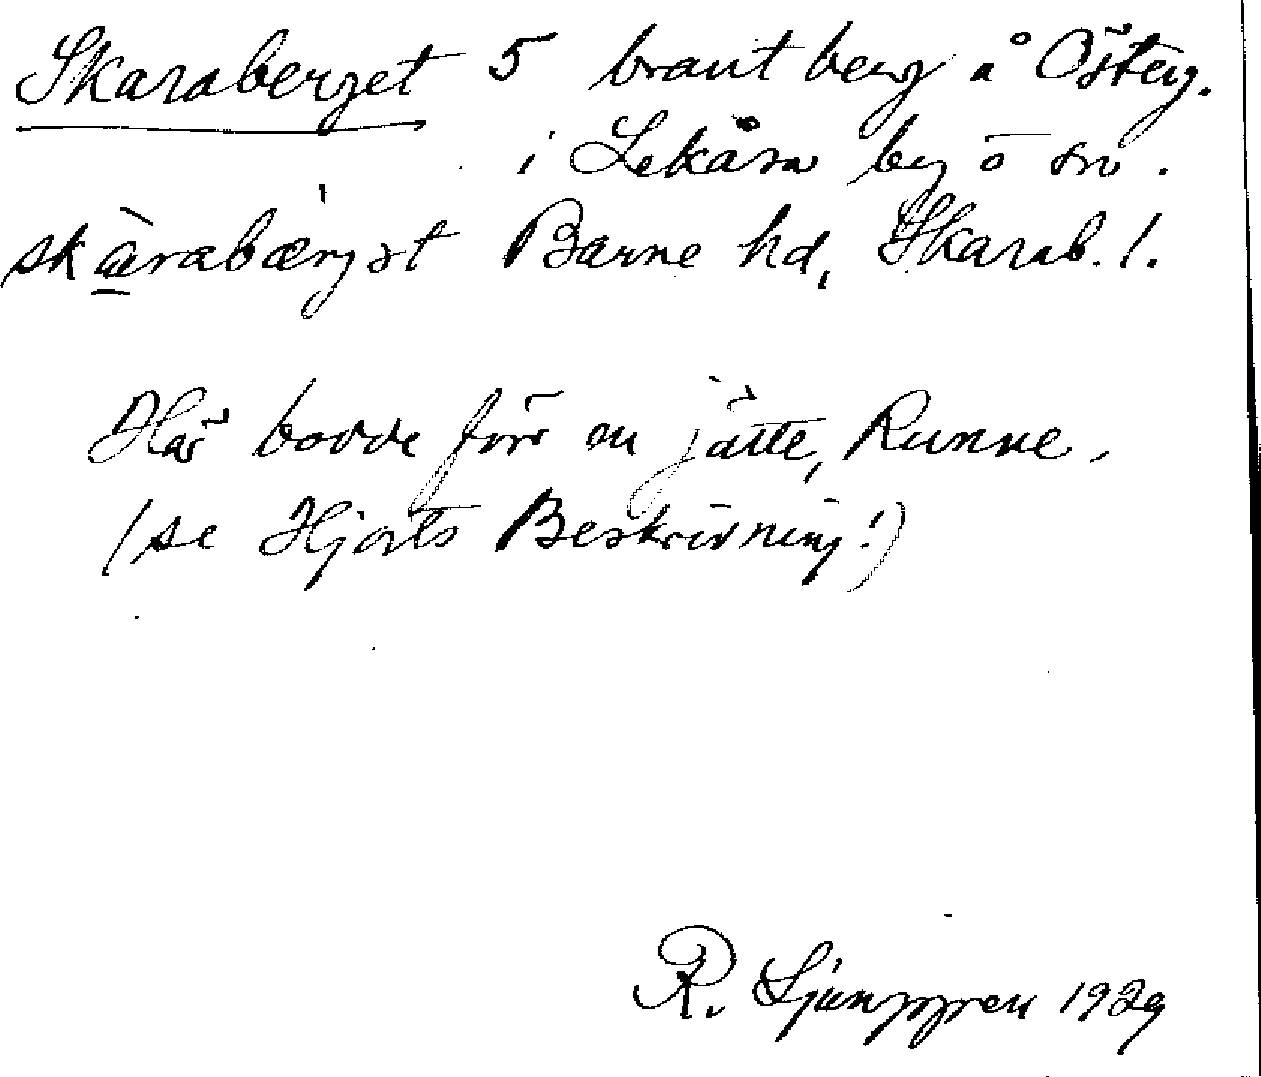 Skaraberget 5 brant berg å Österg.
i Lekåsa by o sn.
skarabærjət Barne hd, Skarab. l.
Här bodde förr en jätte, Runne.
(se Hjorts Beskrivning!)
R. Ljunggren 1929